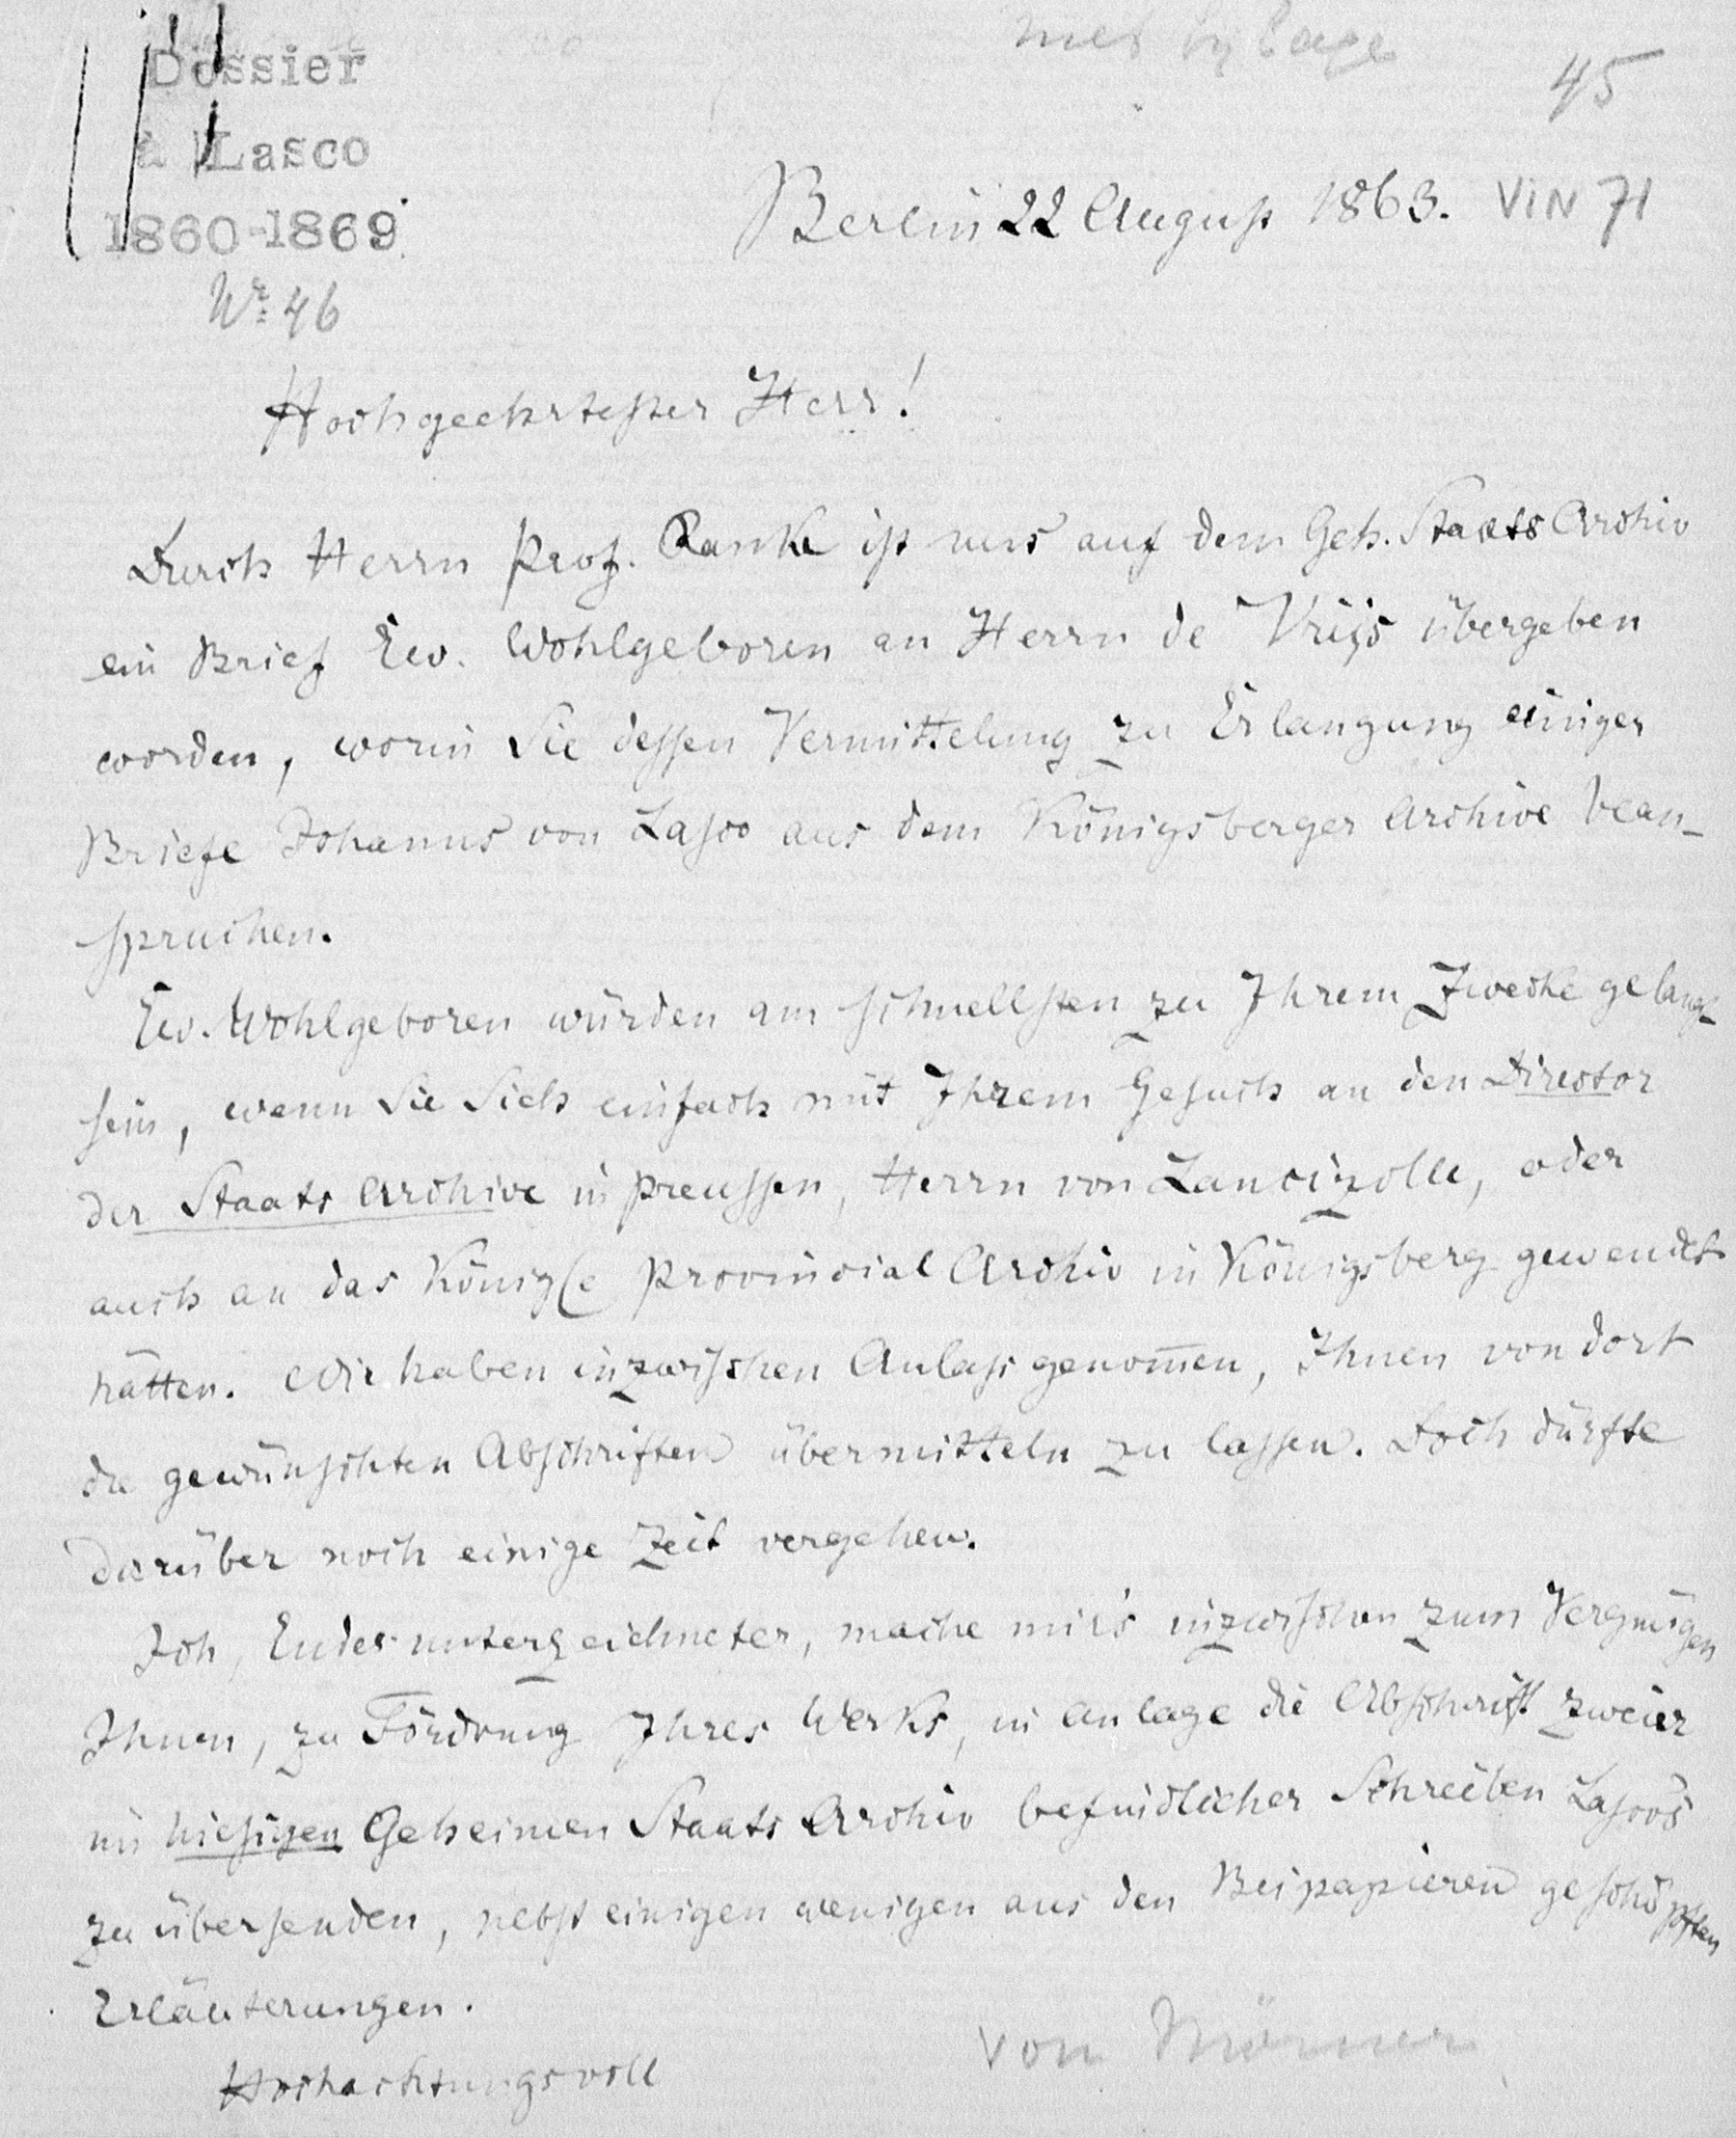 met bylage
45
Dossier
à Lasco
1860-1869
Nr. 46
Berlin 22 August 1863. VIN 71
Hochgeehrtester Herr!
Durch Herrn Prof. Ranke ist uns auf dem Geh. Staats Archiv
ein Brief Ew. Wohlgeboren an Herrn de Vrijs übergeben
worden, worin Sie dessen Vermittelung zu Erlangung einiger
Briefe Johanns von Lasco aus dem Königsberger Archive bean-
spruchen.
Ew. Wohlgeboren würden am schnellsten zu Ihrem Zwecke gelangt
sein, wenn Sie Sich einfach mit Ihrem Gesuch an den Director
der Staats Archive in Preussen, Herrn von Lancizolle, oder
auch an das Königle Provincial Archiv in Königsberg gewendet
hätten. Wir haben inzwischen Anlass genom̄en, Ihnen von dort
die gewünschten Abschriften übermitteln zu lassen. Doch dürfte
darüber noch einige Zeit vergehen.
Ich, Endes-unterzeichneter, mache mir's inzwischen zum Vergnügen
Ihnen, zu Fördrung Ihres Werks, in Anlage die Abschrift zweier
im hiesigen Geheimen Staats Archiv befindlicher Schreiben Lasco's
zu übersenden, nebst einigen wenigen aus den Beipapieren geschöpften
Erläuterungen.
Hochachtungsvoll
von Mörner